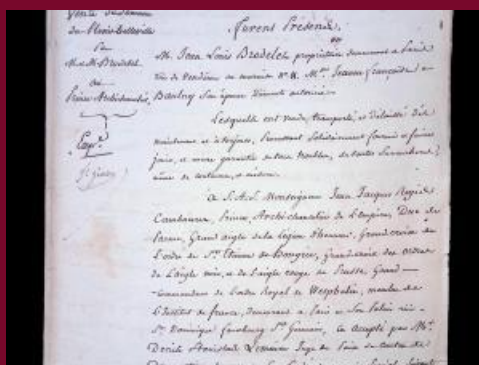 Vente du Domaine
du Plessis-Belleville
Par
M. et Me Bredelet
au
Prince Archichancelier,
Furent Présens,
M. Jean Louis Bredelet propriétaire demeurant à Paris
rue de Vendôme au marais No Me Jeanne françoise
Baulny Son épouse dûment autorisée
Lesquels ont vendu, transporté et délaissé dès
maintenant et à toujours, promettent Solidairement fournir et faire
jouir, et même garantir de tous troubles,
A S.A.S. Monseigneur Jean Jacques Regis de
Cambacérès, Prince, Archichancelier de L'Empire, Duc de
Parme, Grand aigle de la légion d'honneur, Grand croix de
L'ordre de St Etienne de Hongrie, Grand croix des ordres
de L'aigle noir, et de L'aigle rouge de Prusse, Grand
commandeur de L'ordre Royal de Westphalie, membre de
L'Institut de france, demeurant à Paris en Son Palais rue
St Dominique faubourg St Germain, Ce accepté par Mr
Stanislas Lemoine Juge de Paix du Canton de